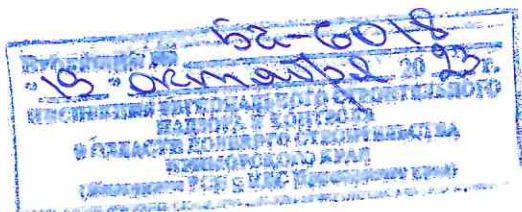 52-6018
" 19 " октября 20 23 г.
ИНСПЕКЦИЯ РЕГИОНАЛЬНОГО СТРОИТЕЛЬНОГО
НАДЗОРА И КОНТРОЛЯ
В ОБЛАСТИ ДОЛЕВОГО СТРОИТЕЛЬСТВА
ПРИМОРСКОГО КРАЯ